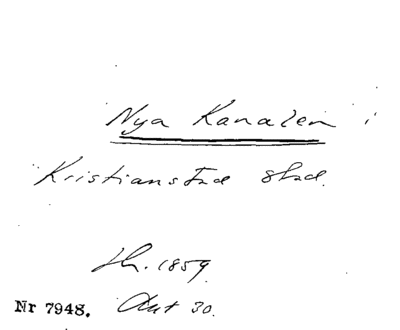 Nya Kanalen i
Kristianstad stad.
Lh. 1859.
Nr 7948. Akt 30.